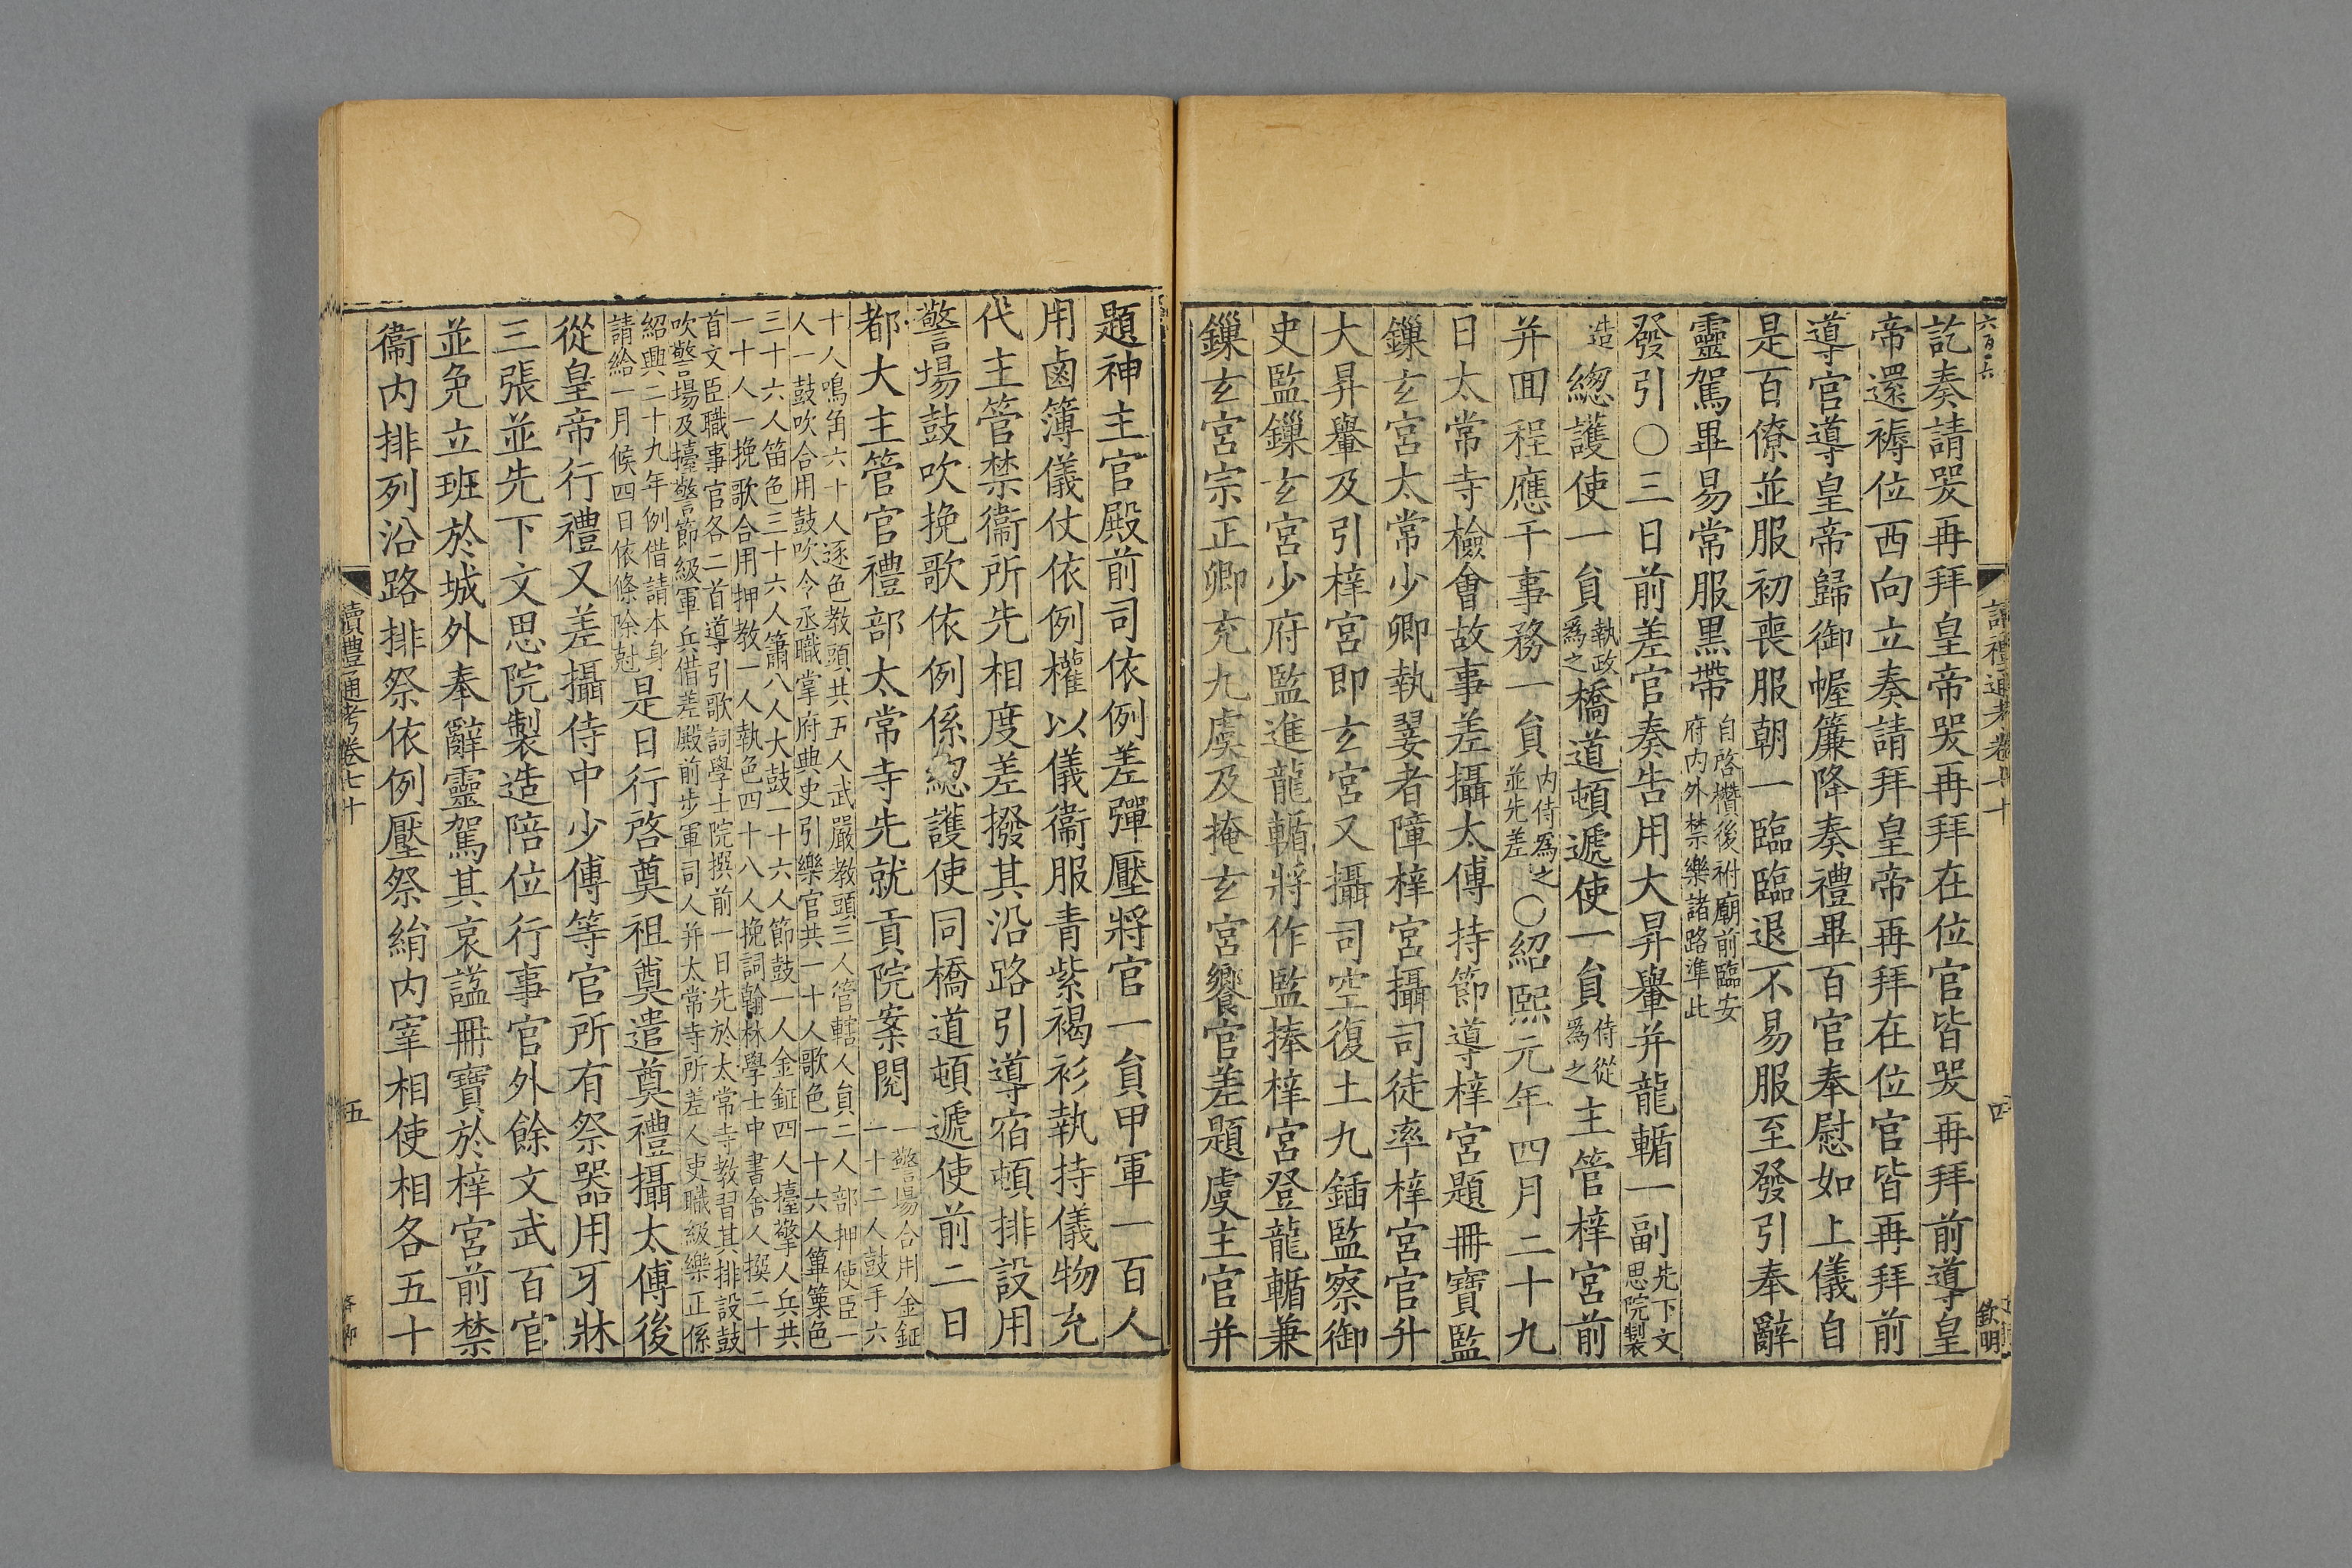 訖奏請哭再拜皇帝哭再拜在位官皆哭再拜前導皇
帝還褥位西向立奏請拜皇帝再拜在位官皆再拜前
導官導皇帝歸御幄簾降奏禮畢百官奉慰如上儀自
是百僚並服初喪服朝一臨臨退不易服至發引奉辭
靈駕畢易常服黑帶自啓欑後祔廟前臨安府内外禁樂諸路準此
發引○三日前差官奏告用大昇轝并龍輴一副先下文思院製
造總護使一員執政爲之橋道頓遞使一員侍從爲之主管梓宮前
并回程應干事務一員内侍爲之並先差○紹熙元年四月二十九
日太常寺檢會故事差攝太傅持節導梓宮題冊寶監
鏁玄宮太常少卿執翣者障梓宮攝司徒率梓宮官升
大昇轝及引梓宮即玄宮又攝司空復土九鍤監察御
史監鏁玄宮少府監進龍輴將作監捧梓宮登龍輴兼
鏁玄宮宗正卿充九虞及掩玄宮饗官差題虞主官并
讀禮通考卷七十
四
題神主官殿前司依例差彈壓將官一員甲軍一百人
用鹵簿儀仗依例權以儀衞服青紫褐衫執持儀物充
代主管禁衞所先相度差撥其沿路引導宿頓排設用
警場鼓吹挽歌依例係總護使同橋道頓遞使前二日
都大主管官禮部太常寺先就貢院案閱一警場合用金鉦一十二人鼓手六
十人鳴角六十人逐色教頭共五人武嚴教頭三人管轄人員二人部押使臣一
人一鼓吹合用鼓吹令丞職掌府典史引樂官共一十人歌色一十六人篳篥色
三十六人笛色三十六人簫八人大鼓一十六人節鼓一人金鉦四人擡擎人兵共
一十人一挽歌合用押教一人執色四十八人挽詞翰林學士中書舍人撰二十
首文臣職事官各二首導引歌詞學士院撰前一日先於太常寺教習其排設鼓
吹警場及擡警節級軍兵借差殿前步軍司人并太常寺所差人吏職級樂正係
紹興二十九年例借請本身請給一月候四日依條除尅是日行啓奠祖奠遣奠禮攝太傅後
從皇帝行禮又差攝侍中少傅等官所有祭器用牙牀
三張並先下文思院製造陪位行事官外餘文武百官
並免立班於城外奉辭靈駕其哀謚冊寶於梓宮前禁
衞内排列沿路排祭依例壓祭絹内宰相使相各五十
讀禮通考卷七十
五